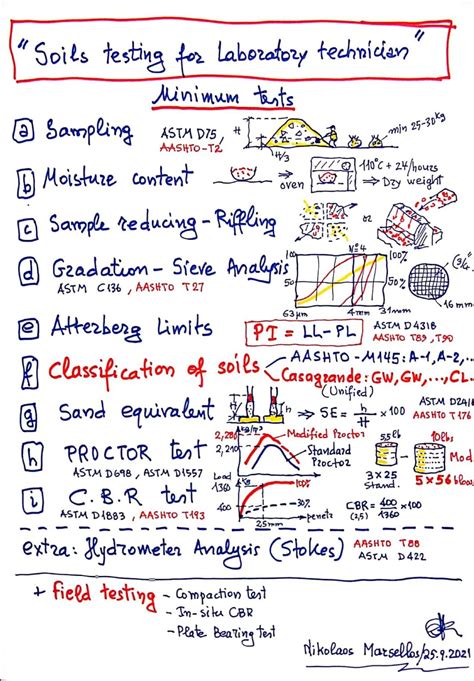 "Soils testing for Laboratory technician"
Minimum tests
a Sampling ASTM D75, AASHTO-T2 H H/3 min 25-30kg
b Moisture content oven 110°C + 24/hours ⇒ Dry weight
c Sample reducing - Riffling or
d Gradation - Sieve Analysis
ASTM C136, AASHTO T27
100 50% Nº4 100 50% 63µm 4mm 31mm 16mm
e Atterberg Limits PI = LL-PL ASTM D4318
AASHTO T89, T90
f Classification of soils AASHTO-M145: A-1, A-2, ...
Casagrande: GW, GW, ..., CL.
(Unified)
g Sand equivalent ⇒ SE = h/H × 100 AASHTO T176
h PROCTOR test
ASTM D698, ASTM D1557
2,210 Modified Proctor
Standard Proctor
5,5lb 10lbs
3×25 Stand. 5×56 blows
Mod
i C.B.R test
ASTM D1883, AASHTO T193
Load 1360 400 100% 30% 25mm penetr
CBR = 400/1360 × 100
(2,5)
extra: Hydrometer Analysis (Stokes) AASHTO T88
ASTM D422
+ field testing - Compaction test
- In-situ CBR
- Plate Bearing test
Nikolaos Marsellos/25.9.2021